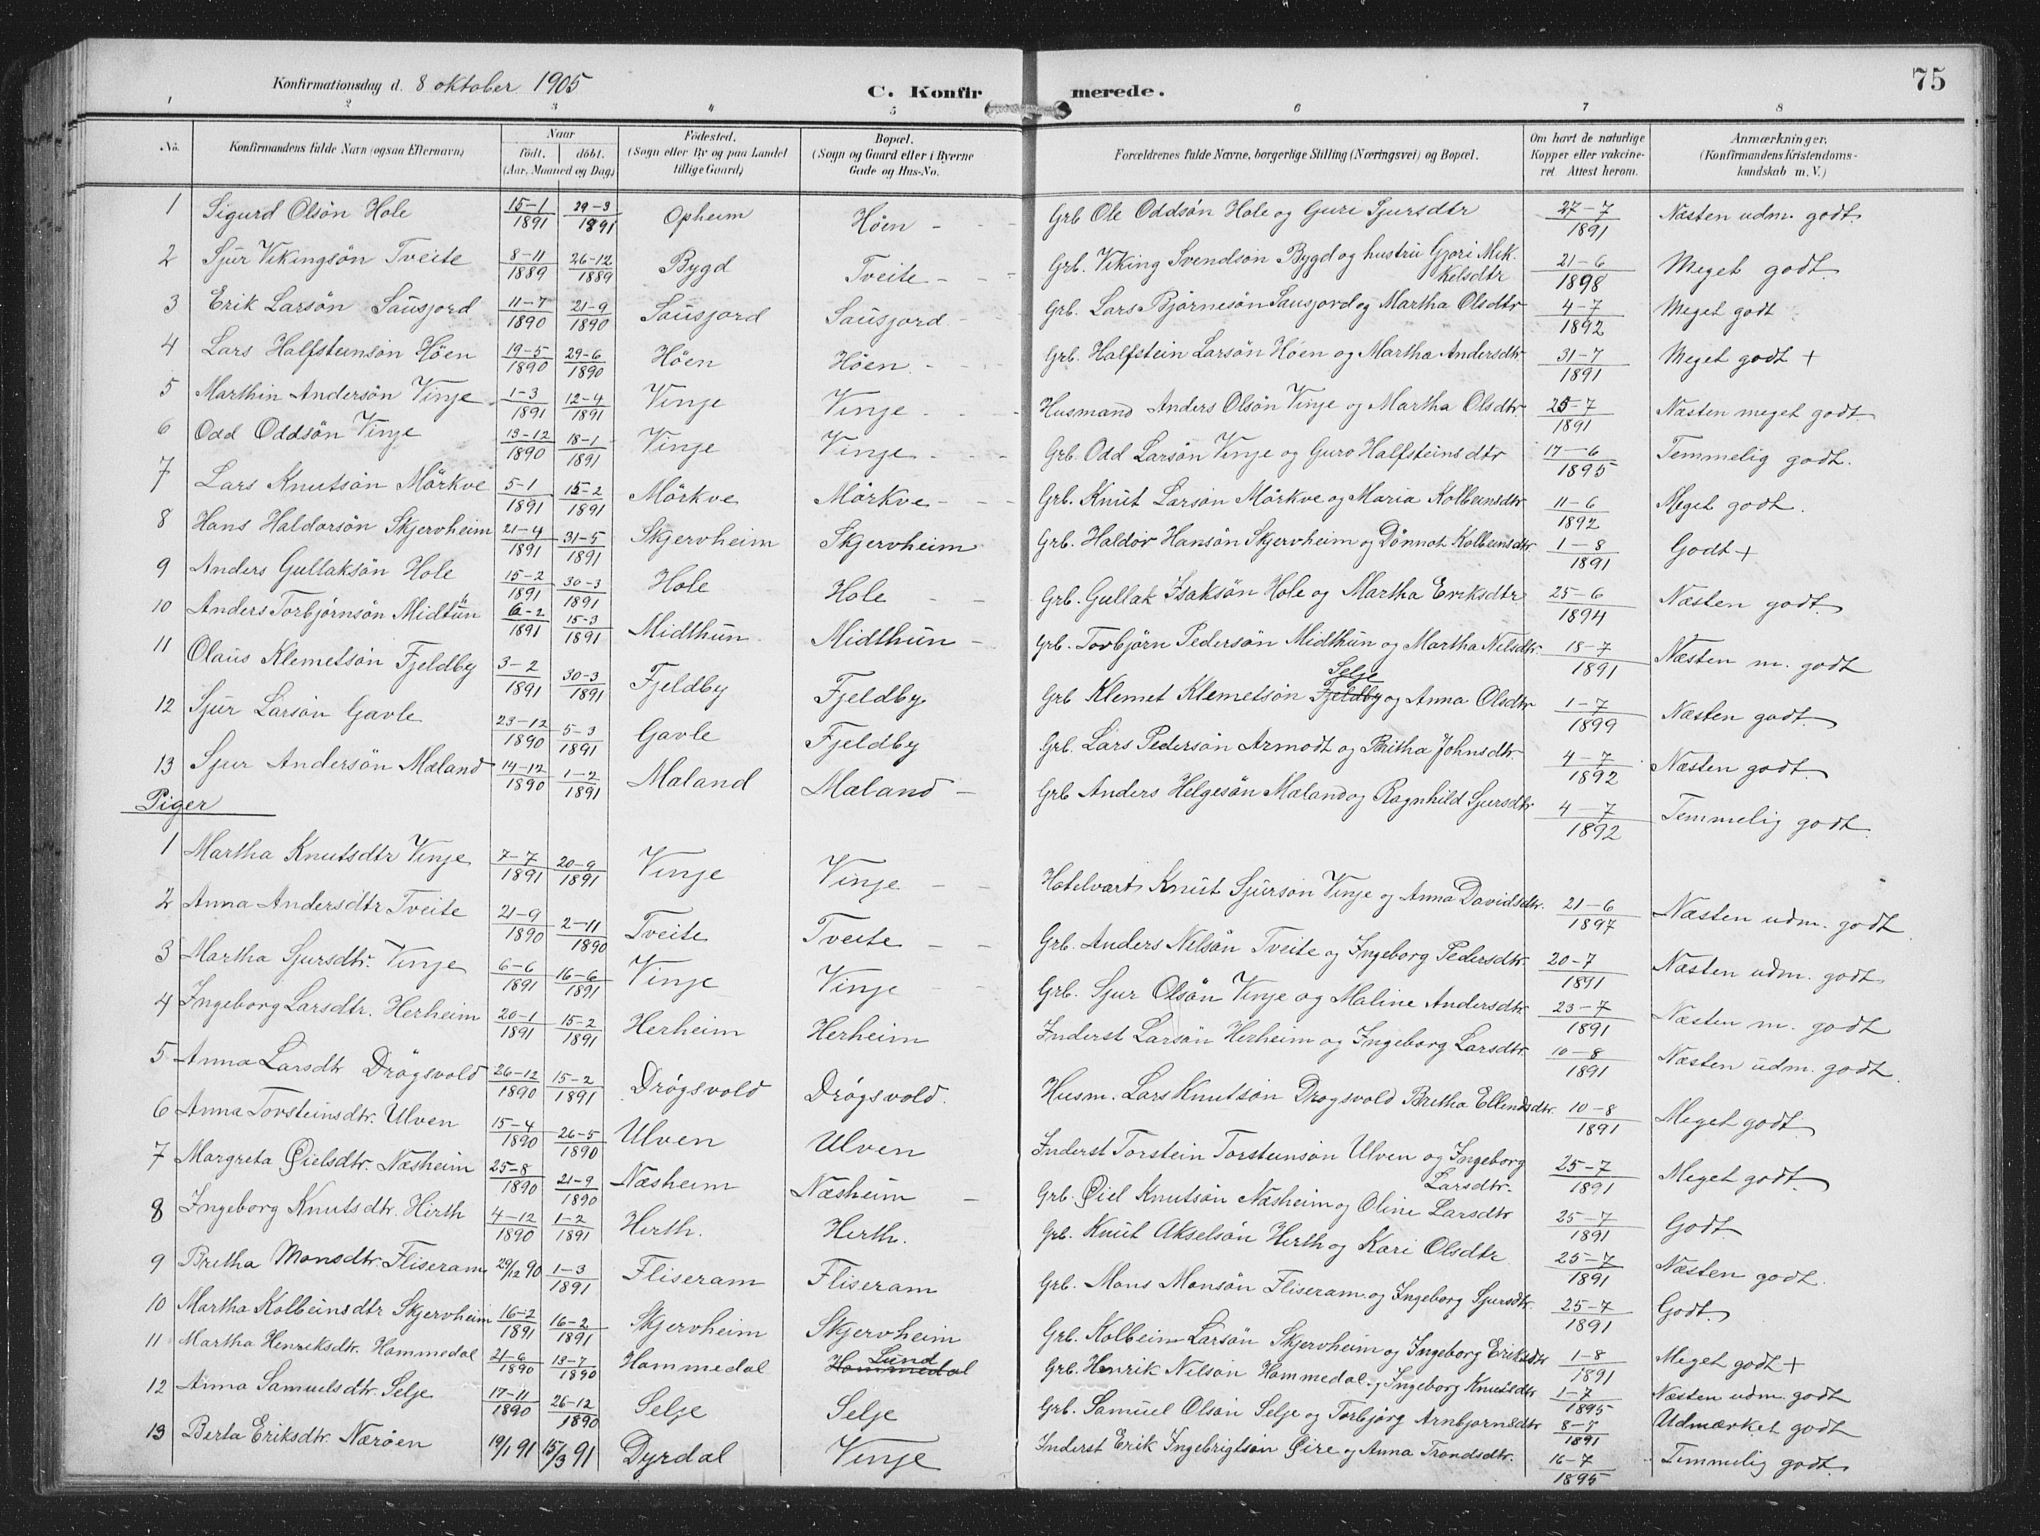 Konfirmationsdag d. 8 oktober 1905 C. Konfirmerede. 75
1 2 3 4 5 6 7 8
No. Konfirmandens fulde Navn (ogsaa Efternavn) Naar födt. döbt. (Aar, Maaned og Dag) Födested. (Sogn eller By og paa Landet tillige Gaard) Bopæl. (Sogn og Gaard eller i Byerne Gade og Hus-No. Forældrenes fulde Navne, borgerlige Stilling (Næringsvei) og Bopæl. Om havt de naturlige Kopper eller vakcineret Attest herom. Anmærkninger. (Konfirmandens Kristendomskundskab m. V.)
1 Sigurd Olsön Hole 15-1 1891 29-3 1891 Opheim Höen Grb Ole Oddsön Hole og Guri Sjursdtr 27-7 1891 Næsten udm. godt.
2 Sjur Vikingsön Tveite 8-11 1889 26-12 1889 Bygd Tveite Grb. Viking Svendsön Bygd og hustru Gjori Mikkelsdtr 21-6 1898 Meget godt
3 Erik Larsön Sausjord 11-7 1890 21-9 1890 Sausjord Sausjord Grb. Lars Björnesön Sausjord og Martha Olsdtr 4-7 1892 Meget godt
4 Lars Halfsteinsön Höen 19-5 1890 29-6 1890 Höen Höen Grb. Halfstein Larsön Höen og Martha Andersdtr 31-7 1891 Meget godt +
5 Marthin Andersön Vinje 1-3 1891 12-4 1891 Vinje Vinje Husmand Anders Olsön Vinje og Martha Olsdtr 25-7 1891 Næsten meget godt
6 Odd Oddsön Vinje 13-12 1890 18-1 1891 Vinje Vinje Grb. Odd Larsön Vinje og Guro Halfsteinsdtr 17-6 1895 Temmelig godt.
7 Lars Knutsön Mörkve 5-1 1891 15-2 1891 Mörkve Mörkve Grb. Knut Larsön Mörkve og Maria Kolbeinsdtr 11-6 1892 Meget godt.
8 Hans Haldorsön Skjervheim 21-4 1891 31-5 1891 Skjervheim Skjervheim Grb. Haldor Hansön Skjervheim og Dönnot Kolbeinsdtr 1-8 1891 Godt +
9 Anders Gullaksön Hole 15-2 1891 30-3 1891 Hole Hole Grb. Gullak Isaksön Hole og Martha Eriksdtr 25-6 1894 Næsten godt.
10 Anders Torbjörnsön Midtün 6-2 1891 15-3 1891 Midthun Midthun Grb. Torbjörn Pedersön Midthun og Martha Nilsdtr. 18-7 1891 Næsten m. godt
11 Olaus Klemetsön Fjeldby 3-2 1891 30-3 1891 Fjeldby Fjeldby Grb Klemet Klemetsön Fjeldby Selje og Anna Olsdtr 1-7 1899 Næsten godt.
12 Sjur Larsön Gavle 23-12 1890 5-3 1891 Gavle Fjeldby Grb. Lars Pedersön Armodt og Britha Johnsdtr. 4-7 1892 Næsten godt.
13 Sjur Andersön Mæland 14-12 1890 1-2 1891 Mæland Mæland Grb Anders Helgesön Mæland og Ragnhild Sjursdtr 4-7 1892 Temmelig godt
Piger
1 Martha Knutsdtr Vinje 7-7 1891 20-9 1891 Vinje Vinje Hotelvært Knut Sjursön Vinje og Anna Davidsdtr. 21-6 1897 Næsten udm. godt
2 Anna Andersdtr Tveite 21-9 1890 2-11 1890 Tveite Tveite Grb. Anders Nilsön Tveite og Ingeborg Pedersdtr. 20-7 1891 Næsten udm. godt
3 Martha Sjursdtr. Vinje 6-6 1891 16-6 1891 Vinje Vinje Grb. Sjur Olsön Vinje og Maline Andersdtr 23-7 1891 Næsten m. godt
4 Ingeborg Larsdtr. Herheim 20-1 1891 15-2 1891 Herheim Herheim Inderst Larsön Herheim og Ingeborg Larsdtr. 10-8 1891 Næsten udm. godt.
5 Anna Larsdtr Drögsvold 26-12 1890 15-2 1891 Drögsvold Drögsvold. Husm. Lars Knutsön Drögsvold Britha Ellendsdtr. 10-8 1891 Meget godt.
6 Anna Torsteinsdtr. Ulven 15-4 1890 26-5 1890 Ulven Ulven Inderst Torstein Torsteinsön Ulven og Ingeborg Larsdtr. 25-7 1891 Meget godt.
7 Margreta Öielsdtr. Næsheim 25-8 1890 21-9 1890 Næsheim Næsheim Grb. Öiel Knutsön Næsheim og Oline Larsdtr 25-7 1891 Godt
8 Ingeborg Knutsdtr. Hirth 4-12 1890 1-2 1891 Herth. Herth. Grb. Knut Akselsön Herth og Kari Olsdtr 25-7 1891 Næsten godt.
9 Britha Monsdtr. Fliseram 29/12 90 1-3 1891 Fliseram Fliseram Grb. Mons Monsön Fliseram og Ingeborg Sjursdtr. 25-7 1891 Godt.
10 Martha Kolbeinsdtr Skjervheim 16-2 1891 16-2 1891 Skjervheim Skjervheim Grb. Kolbein Larsön Skjervheim og Ingeborg Eriksdtr 1-8 1891 Meget godt +
11 Martha Henriksdtr. Hammedal 21-6 1890 13-7 1890 Hammedal Hammedal Lund Grb. Henrik Nilsön Hammedal, Ingeborg Knutsdtr 1-7 1895 Næsten udm. godt
12 Anna Samuelsdtr. Selje 17-11 1890 26-12 1890 Selje Selje Grb. Samuel Olsön Selje og Torbjörg Arnbjornsdtr 8-7 1891 Udmærket godt
13 Berta Eriksdtr. Næröen 19/1 91 15/3 91 Dyrdal Vinje Inderst Erik Ingebrigtsön Öire og Anna Trondsdtr. 16-7 1895 Temmelig godt.